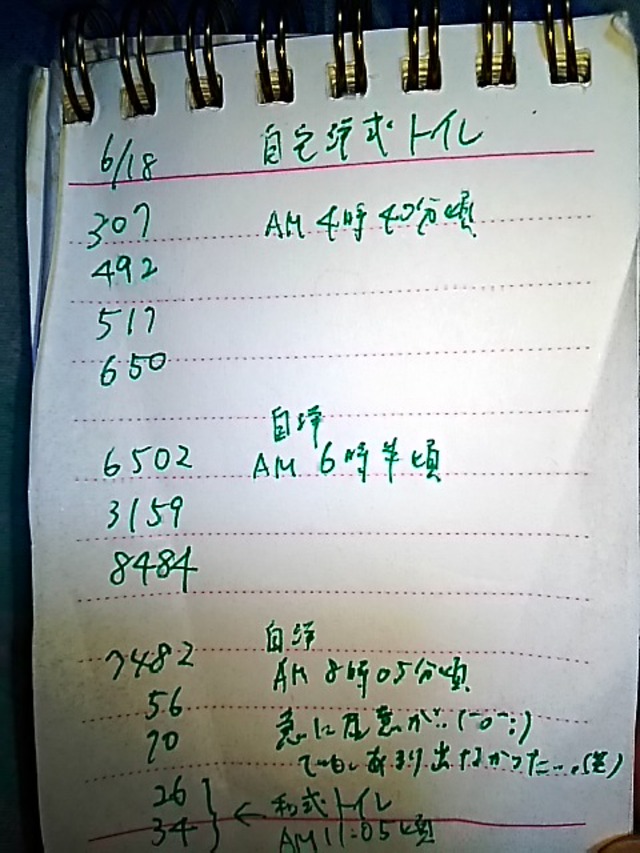 6/18 自宅洋式トイレ
307 AM 4時40分頃
492
517
650
自洋
6502 AM 6時半頃
3159
8484
自洋
7482 AM 8時05分頃
56 急に便意が…(-o-;)
70 でも、あまり出なかった…。(笑)
26 ← 和式トイレ
34 AM11:05頃